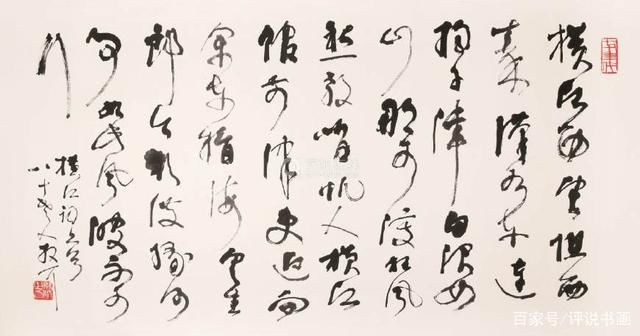 横江西望阻西
秦漢水东連
揚子津白浪如
山那可渡狂風
愁殺峭帆人横江
館前津吏迎向
余东指海雲生
郎今欲渡缘何
事如此風波不可
行
横江词二首
八十叟
百家号/评说书画